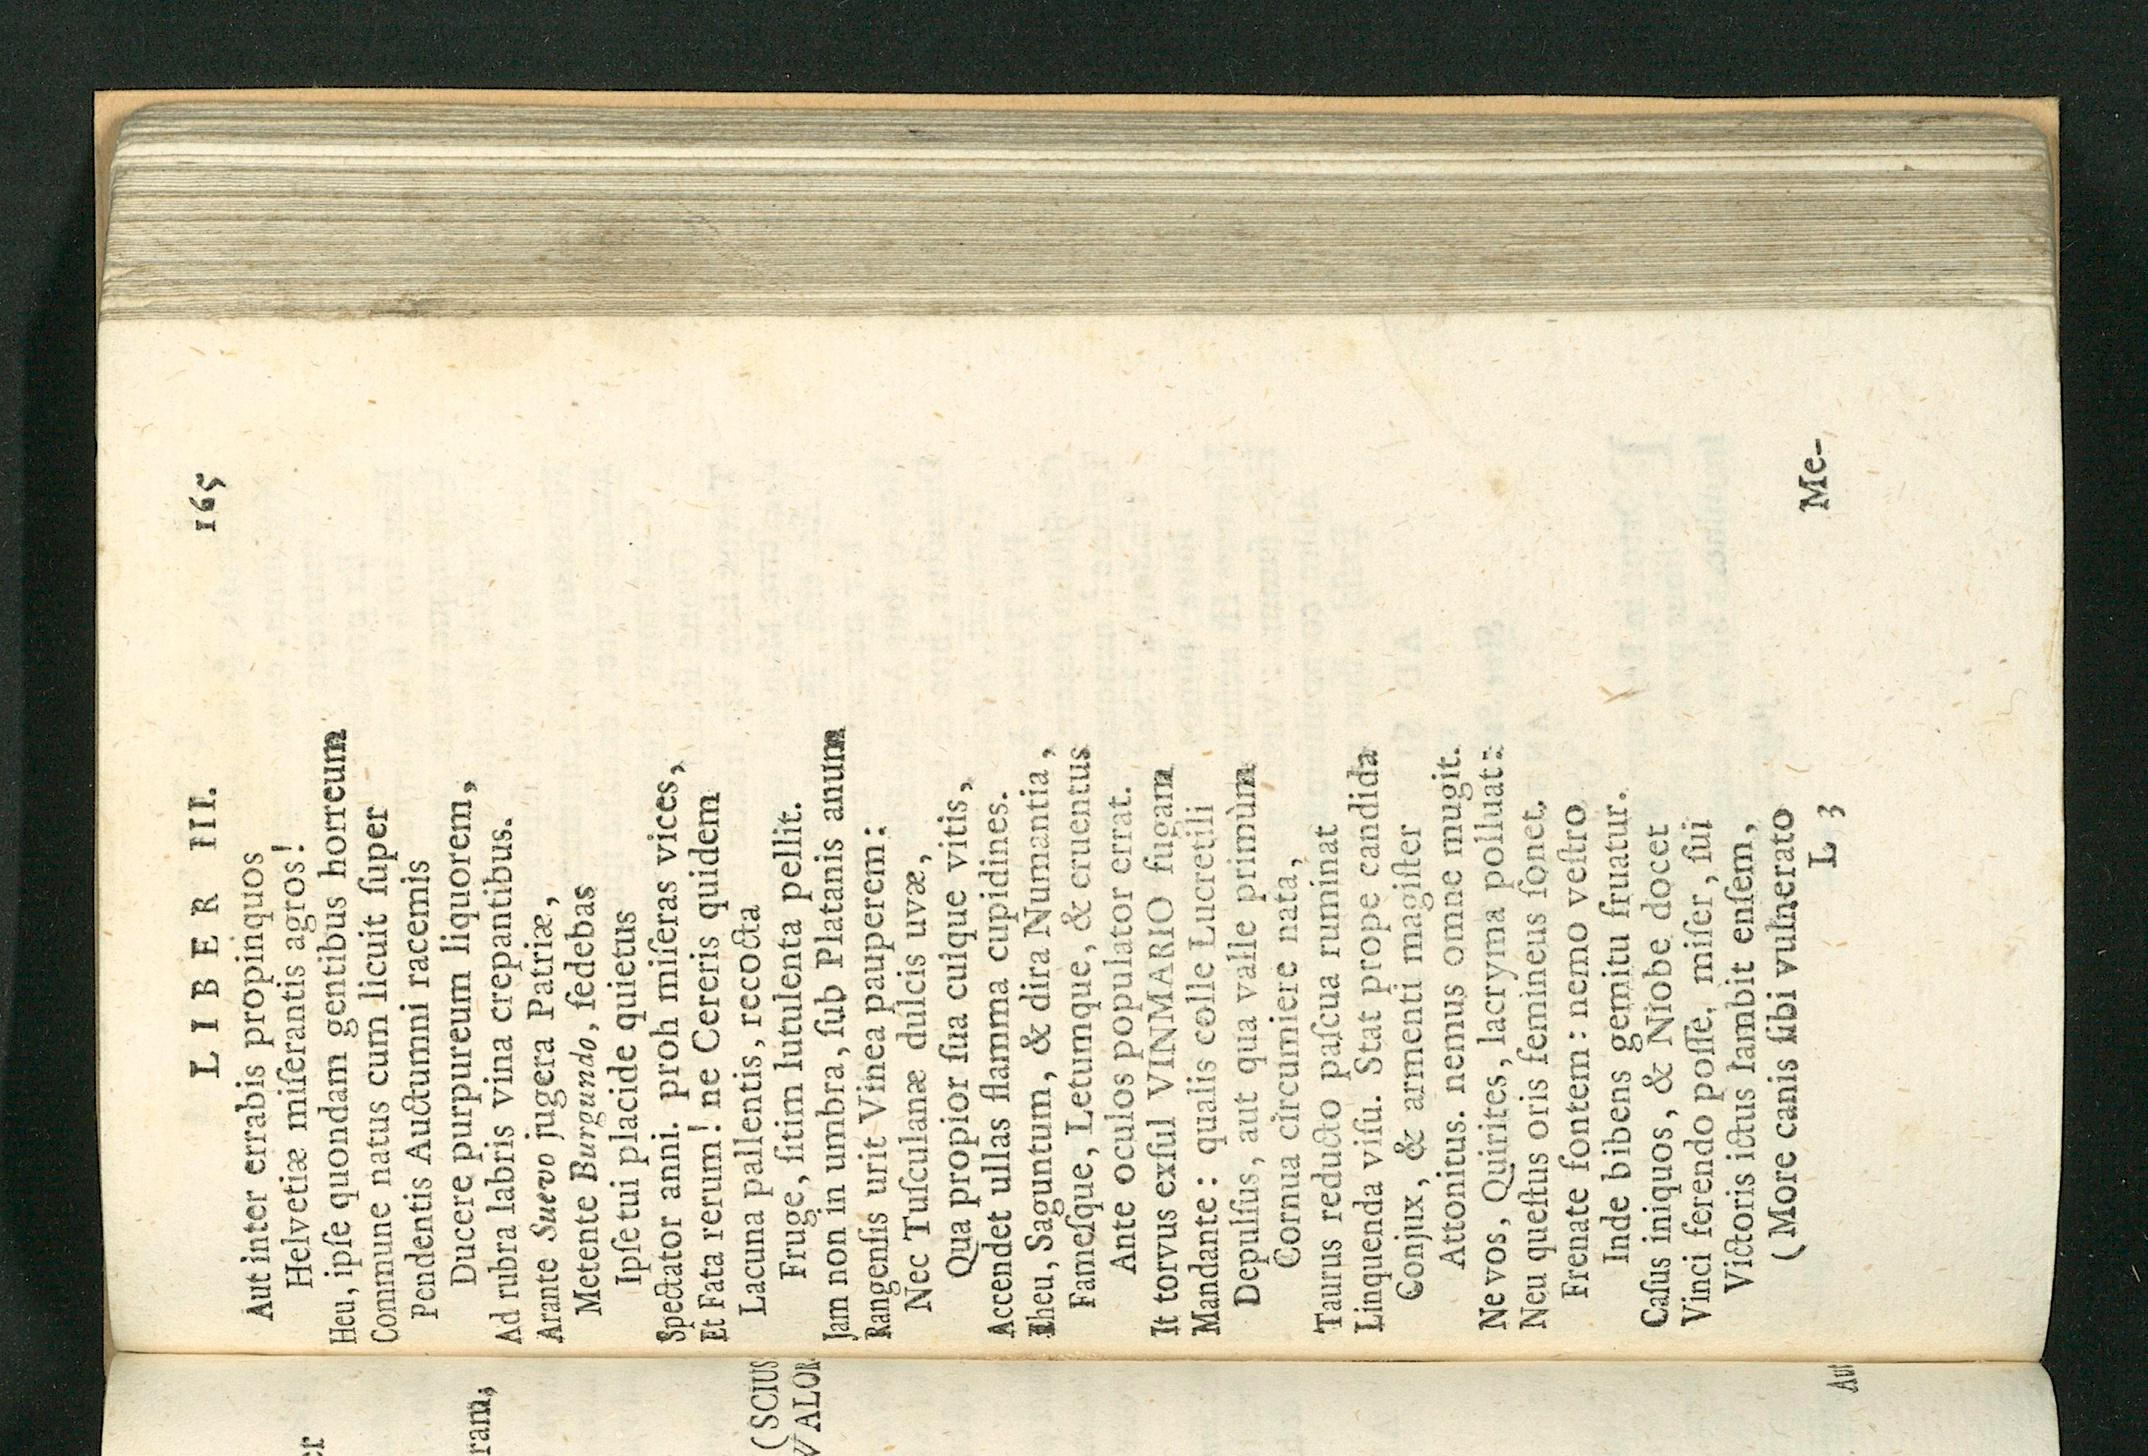 LIBER III. 165
Aut inter errabis propinquos
Helvetiæ miſerantis agros!
Heu, ipſe quondam gentibus horreum
Commune natus cum licuit ſuper
Pendentis Auctumni racemis
Ducere purpureum liquorem,
Ad rubra labris vina crepantibus.
Arante Suevo jugera Patriæ,
Metente Burgundo, ſedebas
Ipſe tui placide quietus
Spectator anni. proh miſeras vices,
Et Fata rerum! ne Cereris quidem
Lacuna pallentis, recocta
Fruge, ſitim lutulenta pellit.
Jam non in umbra, ſub Platanis anum
Rangenſis urit Vinea pauperem:
Nec Tuſculanæ dulcis uvæ,
Qua propior ſua cuique vitis,
Accendet ullas flamma cupidines.
Eheu, Saguntum, & dira Numantia,
Fameſque, Letumque, & cruentus
Ante oculos populator errat.
It torvus exſul VINMARIO fugam
Mandante: qualis colle Lucretili
Depulſus, aut qua valle primùm
Cornua circumiere nata,
Taurus reducto paſcua ruminat
Linquenda viſu. Stat prope candida
Conjux, & armenti magiſter
Attonitus. nemus omne mugit.
Ne vos, Quirites, lacryma polluat:
Neu queſtus oris femineus ſonet,
Frenate fontem: nemo veſtro
Inde bibens gemitu fruatur.
Caſus iniquos, & Niobe docet
Vinci ferendo poſſe. miſer, ſui
Victoris ictus lambit enſem,
(More canis ſibi vulnerato
L 3 Me-
er
ram,
(SCIUS
VALOR
Aut